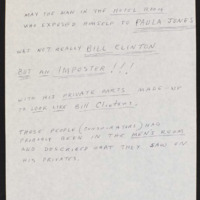 WAS THE MAN IN THE HOTEL ROOM
WHO EXPOSED HIMSELF TO PAULA JONES
NOT REALLY BILL CLINTON
BUT AN IMPOSTOR ! ! !
WITH HIS PRIVATE PARTS MADE UP
TO LOOK LIKE Bill Clintons.
THESE PEOPLE (CONSPIRATORS) HAD
PROBABLY BEEN IN THE MEN'S ROOM
AND DESCRIBED WHAT THEY SAW ON
HIS PRIVATES.